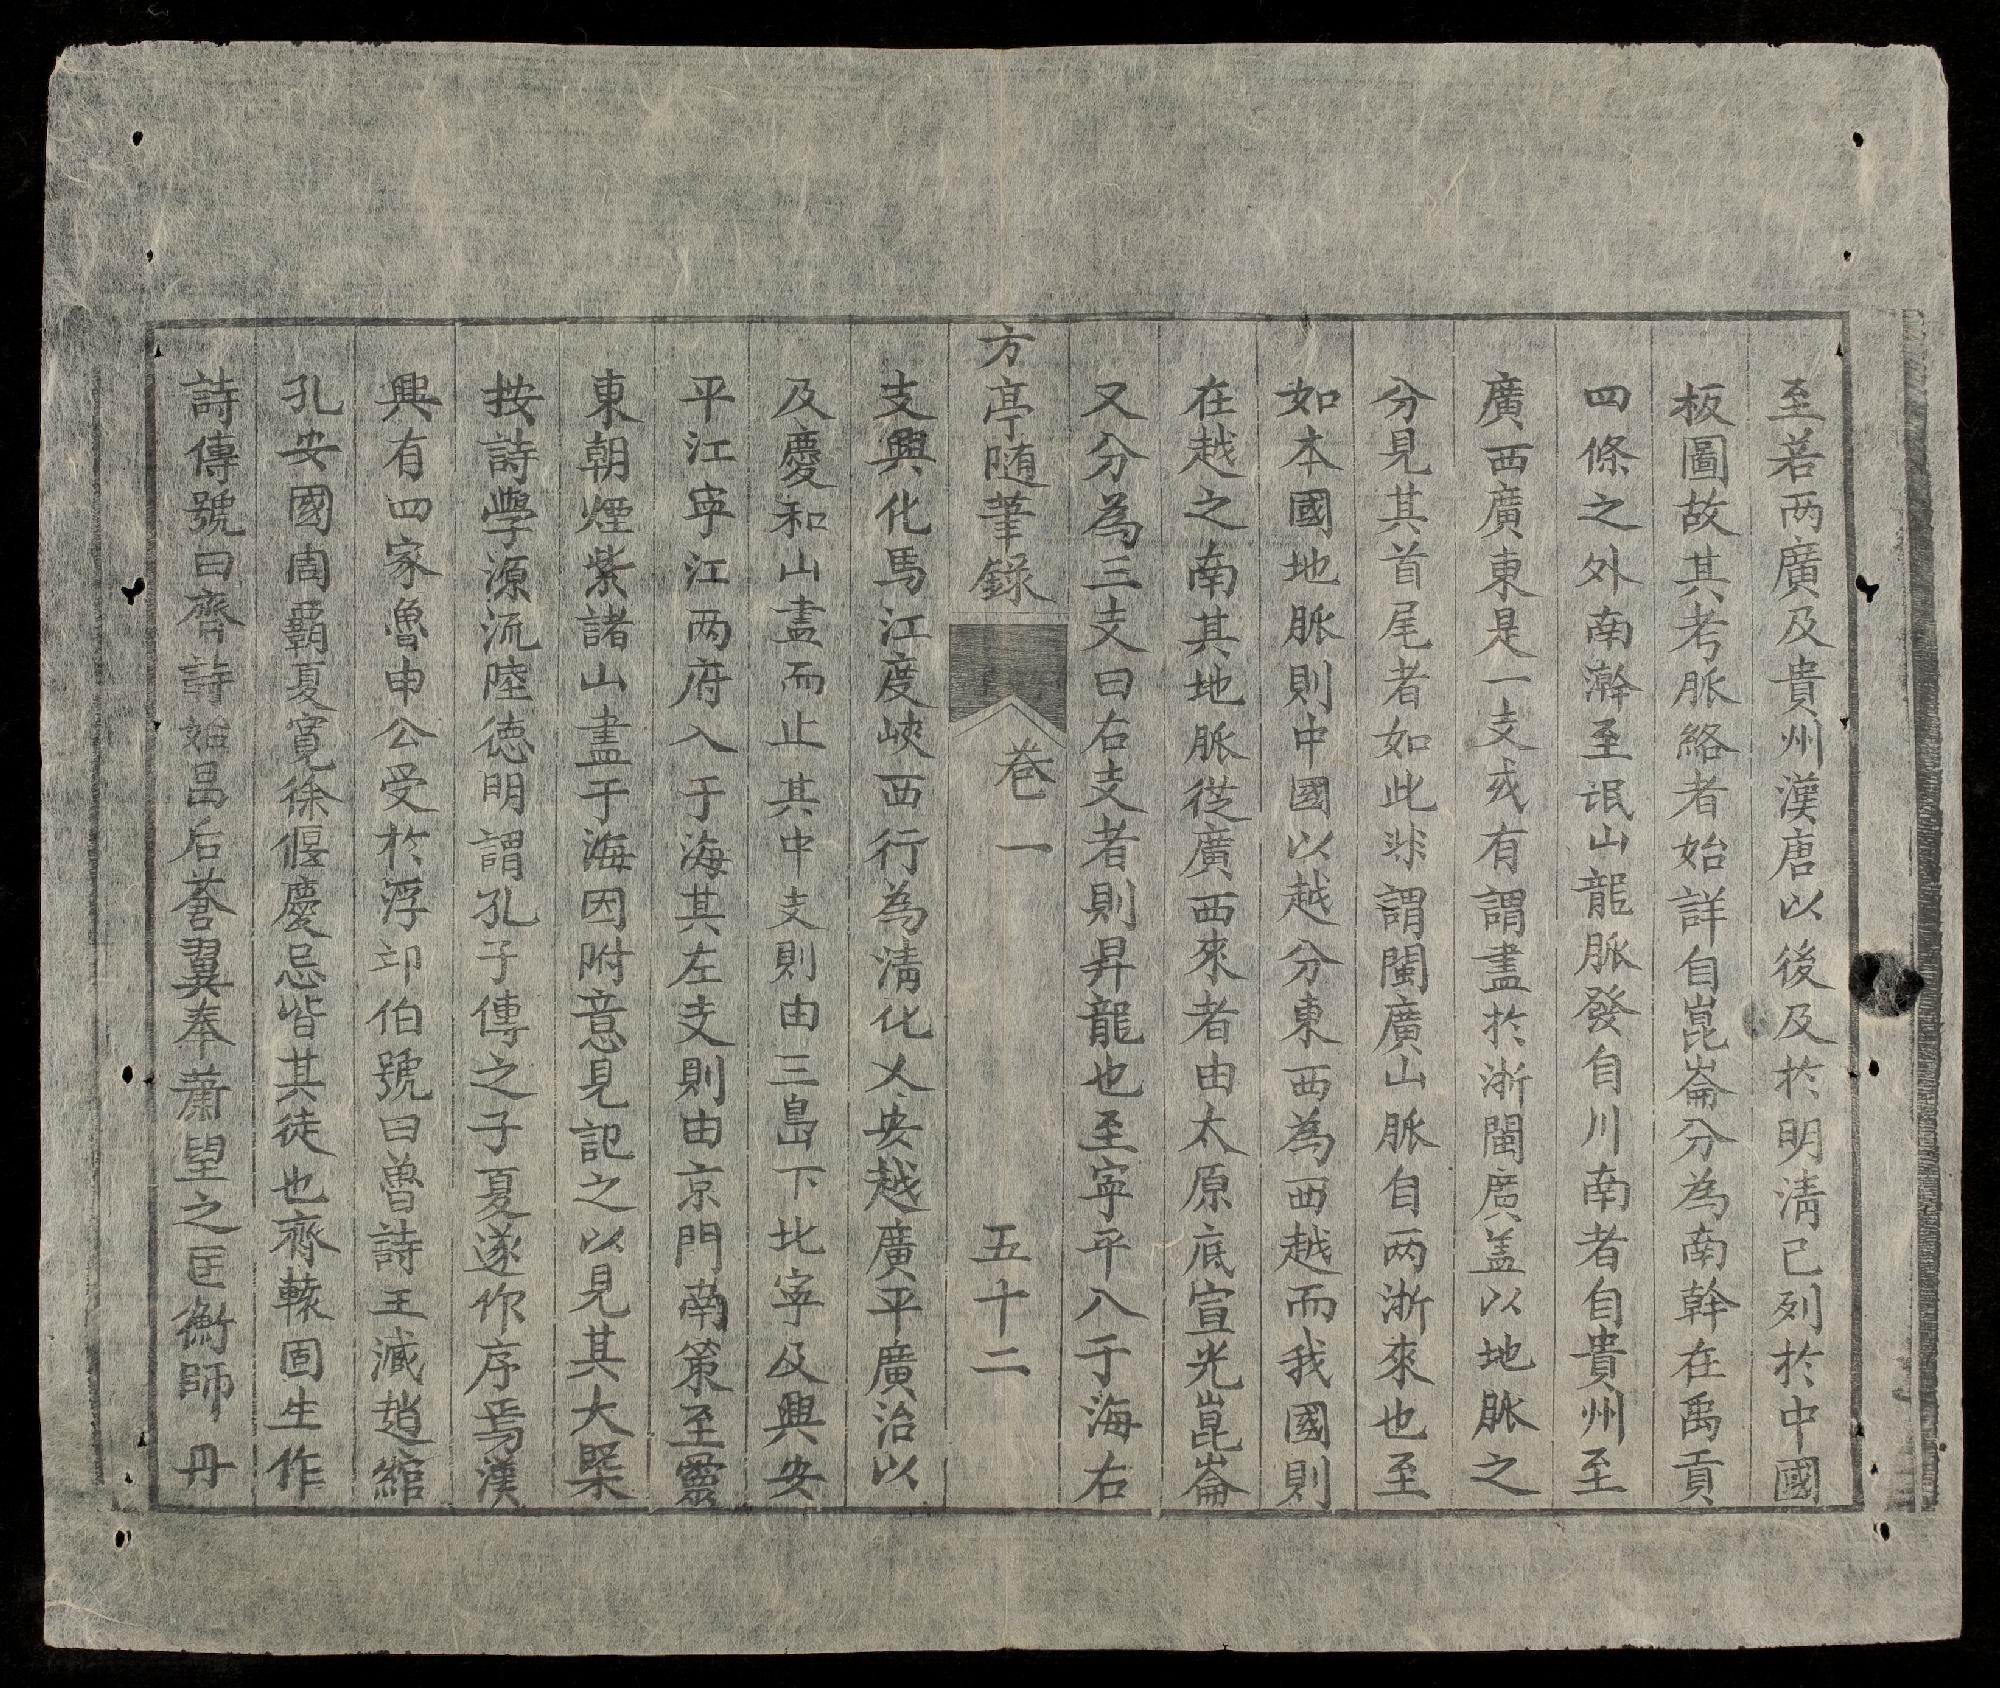 至若两廣及貴州漢唐以後及扵明清已列扵中國
板圖故其考脈絡者始詳自崑崙分為南幹在禹貢
四條之外南澣至岷山龍脈發自川南者自貴州至
廣西廣東是一支或有謂盡扵浙閩廣盖以地脈之
分見其首尾者如此非謂閩廣山脈自两浙來也至
如本國地脈則中國以越分東西為西越而我國則
在越之南其地脈從廣西來者由太原底宣光崑崙
又分為三支曰右支者則昇龍也至寧平入于海右
方亭随筆錄 卷一 五十二
支興化馬江度峽西行為清化乂安越廣平廣治以
及慶和山盡而止其中支則由三島下北寧及興安
平江寧江两府入于海其左支則由京門南策至靈
東朝煙紫諸山盡于海因附意見記之以見其大槩
按詩學源流陸德明謂孔子傳之子夏遂作序焉漢
興有四家魯申公受扵浮邱伯號曰魯詩王臧趙綰
孔安國周霸夏寬徐偃慶忌皆其徒也齊轅固生作
詩傳號曰齊詩始昌后蒼翼奉蕭望之匡衡師丹